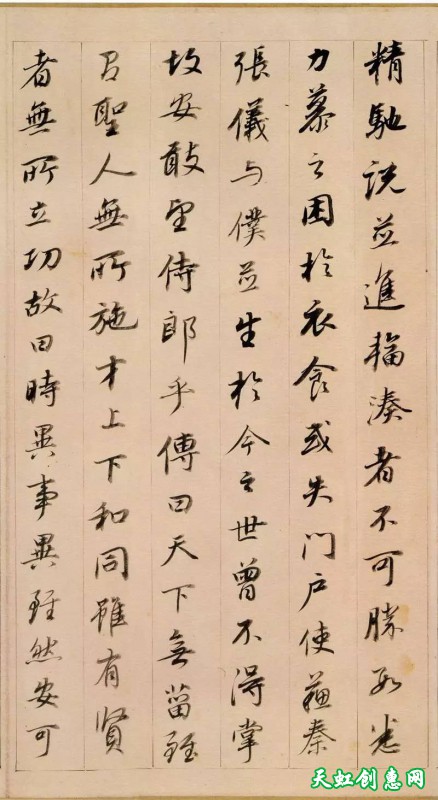 精馳説並進輻湊者不可勝數悉
力慕之困於衣食或失門戶使蘇秦
張儀与僕並生於今之世曾不得掌
故安敢望侍郎乎傳曰天下無菑雖
聖人無所施才上下和同雖有賢
者無所立功故曰時異事異雖然安可
天虹创惠网